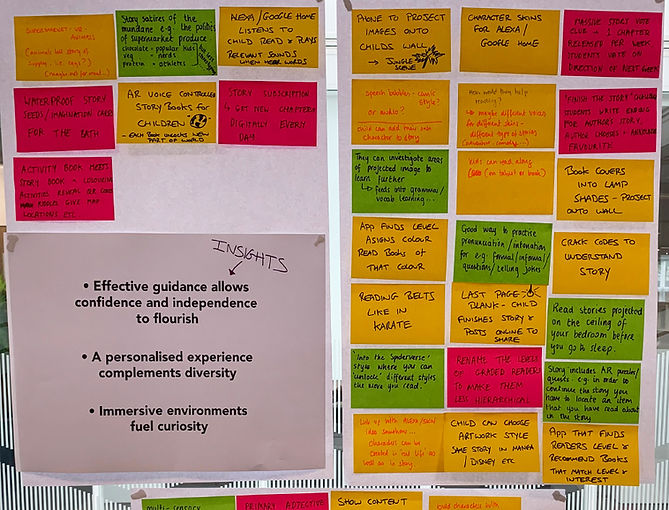 Story satires of the
mundane e.g. the politics
of supermarket food
chocolate - popular kids
veg - nerds
protein - athletes
ALEXA/GOOGLE HOME
LISTENS TO
CHILD READ & PLAYS
RELEVANT SOUNDS
WHEN HEAR WORDS
WATERPROOF STORY
SEEDS/IMAGINATION CARDS
FOR THE BATH
AR VOICE CONTROLLED
STORY BOOKS FOR
CHILDREN
- EACH BOOK UNLOCKS NEW
PART OF WORLD
STORY SUBSCRIPTION
GET NEW CHAPTER
DIGITALLY EVERY
DAY
ACTIVITY BOOK MEETS
STORY BOOK - COLOURING
ACTIVITIES REVEAL QR CODES
RIDDLES GIVE MAP
LOCATIONS ETC
INSIGHTS
• Effective guidance allows
confidence and independence
to flourish
• A personalised experience
complements diversity
• Immersive environments
fuel curiosity
PHONE TO PROJECT
IMAGES ONTO
CHILDS WALL
→ JUNGLE
SCENE
CHARACTER SKINS
FOR ALEXA/
GOOGLE HOME
MASSIVE STORY VOTE
CLUB → 1 CHAPTER
RELEASED PER WEEK
STUDENTS VOTE ON
DIRECTION OF NEXT
speech bubbles - comic style?
or audio?
child can add their own
character to story
How would they help
reading?
→ maybe different voices
for different skins -
different type of stories
'FINISH THE STORY'
STUDENTS WRITE ENDING
FOR AUTHORS STORY,
AUTHOR CHOOSES
FAVOURITE
They can investigate areas
of projected image to
learn further
↳ feeds into grammar/
vocab learning...
kids can read along
(on tablet or book)
BOOK COVERS
INTO LAMP
SHADES - PROJECT
ONTO WALL
APP FINDS LEVEL
ASIGNS COLOUR
READ BOOKS OF
THAT COLOUR
Good way to practise
pronunciation/intonation
for e.g. formal/informal/
questions/telling jokes
CRACK CODES TO
UNDERSTAND
STORY
READING BELTS
LIKE IN
KARATE
LAST PAGE
BLANK - CHILD
FINISHES STORY &
POSTS ONLINE TO
SHARE
Read stories projected
on the ceiling of
your bedroom before
you go to sleep.
'Into the Spiderverse'
style where you can
'unlock' different styles
the more you read.
RENAME THE LEVELS
OF GRADED READERS
TO MAKE THEM
LESS HIERARCHICAL
Story includes AR puzzles/
quests e.g. in order to
continue the story you
have to locate an item
that you have read about
in the story
Link up with Alexa/skin
idea somehow...
characters can be
created in real life as
well as in story
CHILD CAN CHOOSE
ARTWORK STYLE
SAME STORY IN MANGA
/ DISNEY ETC
APP THAT FINDS
READERS LEVEL &
RECOMMEND BOOKS
THAT MATCH LEVEL &
INTEREST
multi-sensory
PRIMARY ADJECTIVE
SHOW CONTENT